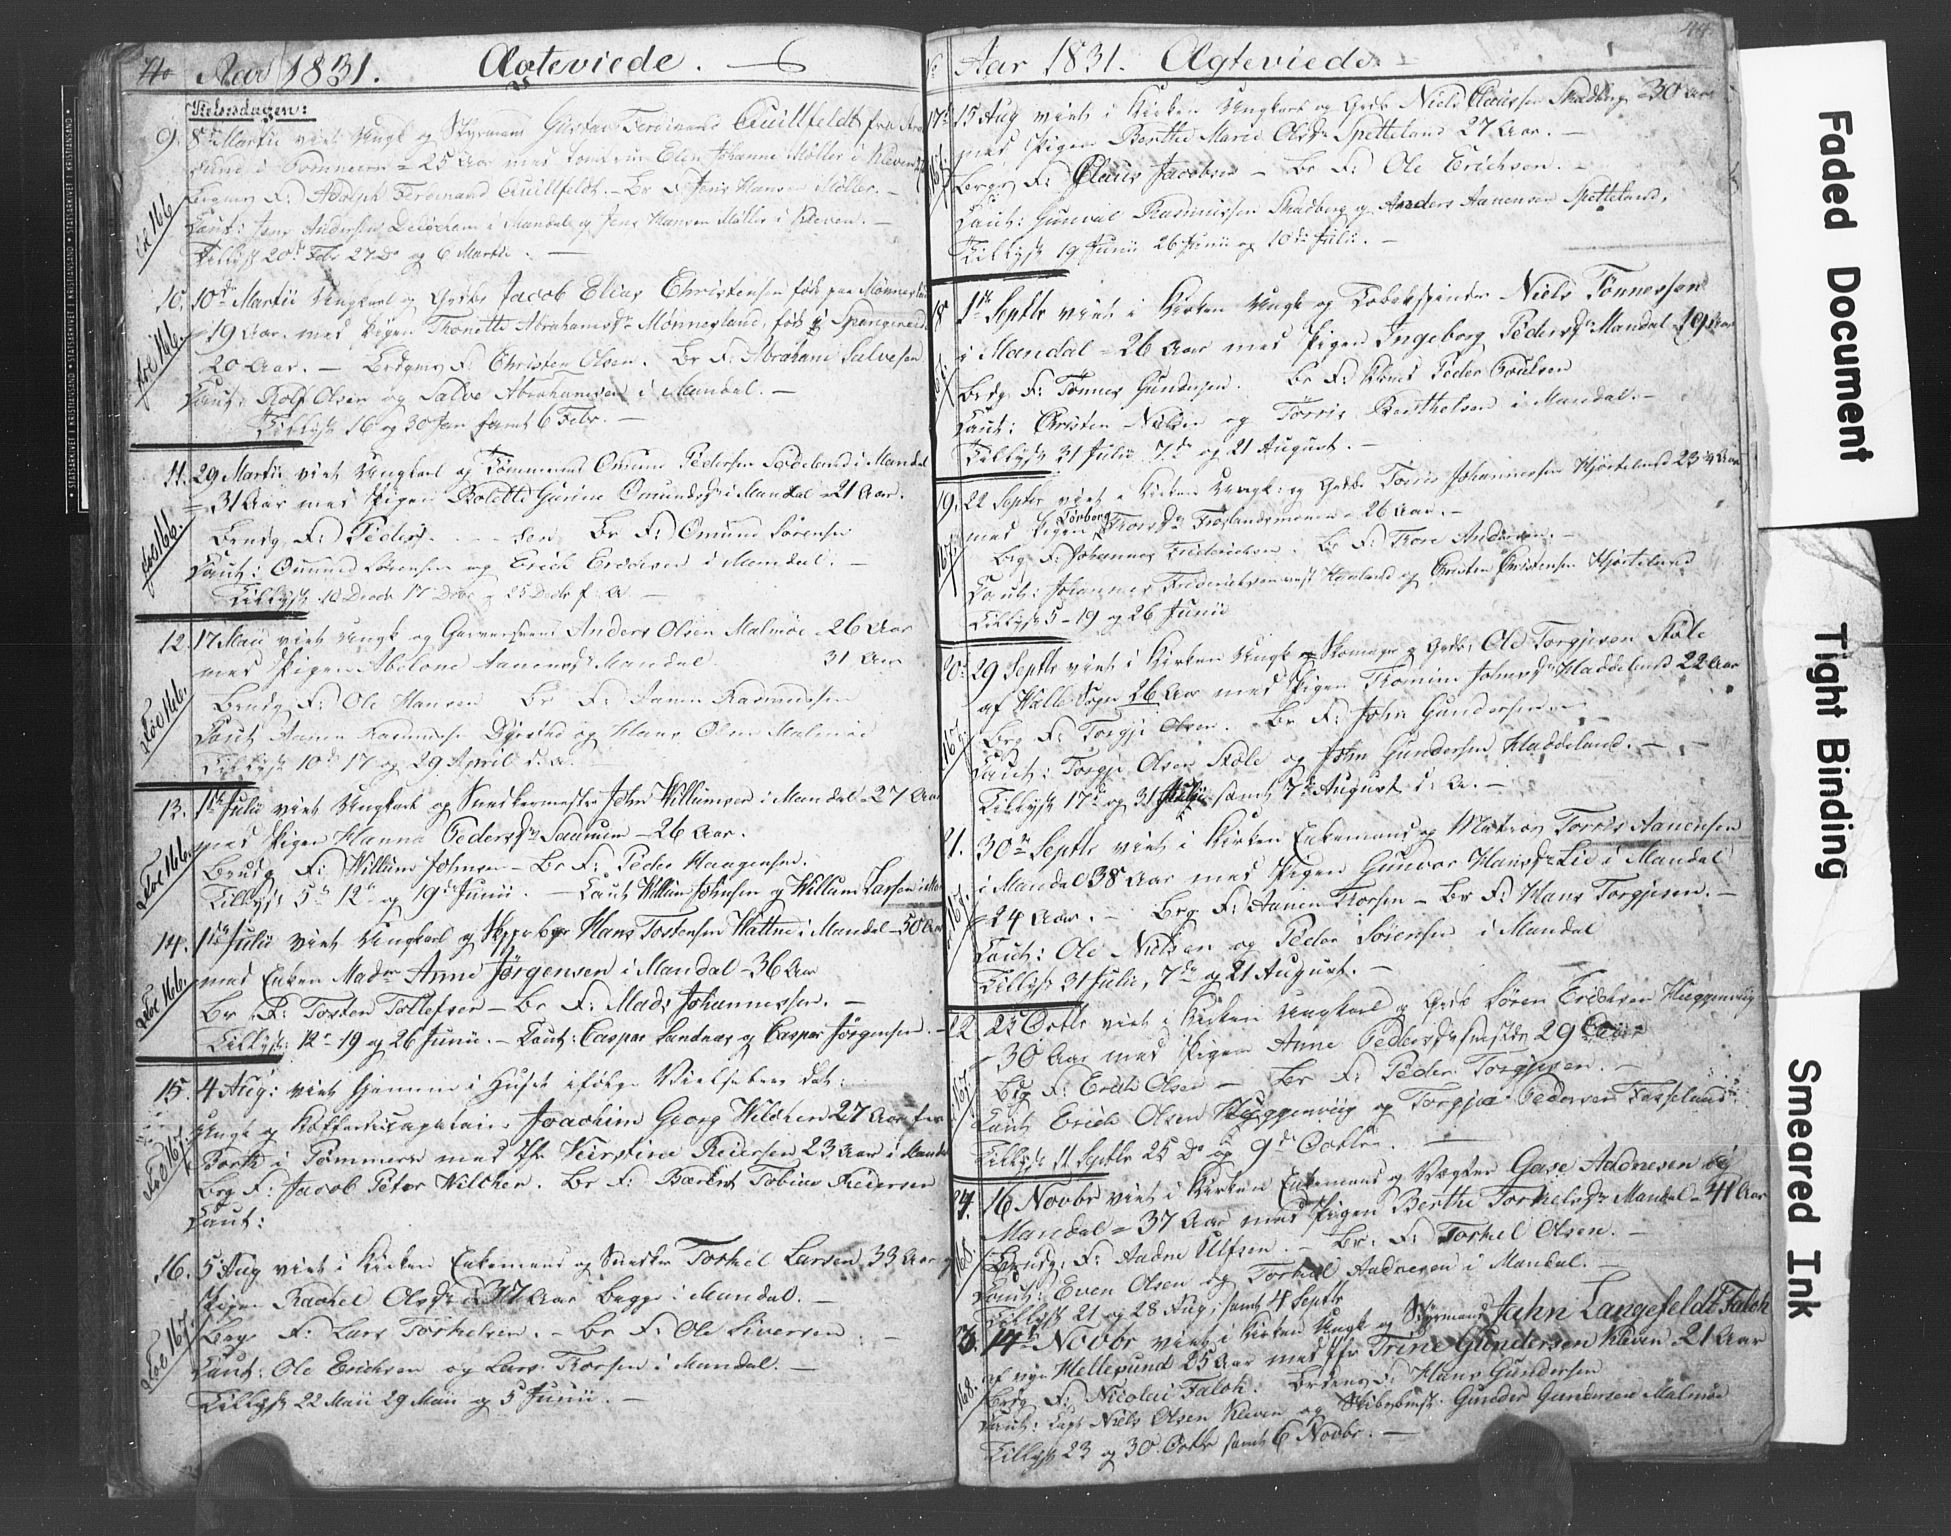 No Aar 1831. Ægteviede.
Vielsesdagen:
9. 8de Martii viet Ungk og Styrmand Gustav Ferdinand Quillfeldt fra
sund i Pommern 25 Aar med Jomfrue Elen Johanne Møller i Kleven
Brgms F: Adolph Ferdinand Quillfeldt - Br F: Jens Hansen Møller. -
Caut: Jens Andersen i Mandal og Jens Hansen Møller i Kleven. -
Tillyst 20de Febr 27 Do og 6 Martii. -
Fol 166
10. 10de Martii Ungkarl og Grdbr Jacob Elias Christensen født paa Mønnesland
19 Aar. med Pigen Tronette Abrahamsdr Mønnesland, født i Spangereid
20 Aar. - Brdgms F: Christen Olsen. Br F: Abraham Salvesen
Caut: Rolf Olsen og Salve Abrahamsen i Mandal. -
Tillyst 16 og 30 Jan samt 6 Febr. -
Fol 166.
11. 29 Martii viet Ungkarl og Tømmermd Omund Pedersen i Mandal
= 31 Aar med Pigen Bolette Gurine Omundsdr i Mandal 21 Aar.
Brudg. F: Peder . . . . sen Br F: Omund Sørensen
Caut: Omund Sørensen og Erich Erichsen i Mandal. -
Tillyst Decbr 17 Do og 25 Decbr f. A. -
Fol 166.
12. 17 Maii viet Ungk og Garversvend Anders Olsen Malmøe 26 Aar
med Pigen Abelone Aanensdr Mandal 31 Aar
Brudg F: Ole Hansen Br F: Aanen Rasmussen
Caut Aanen Rasmussen og Hans Olsen Malmøe
Tillyst 10de 17 og 29 April d. A.
Fol 166.
13. 1ste Julii viet Ungkarl og Snedkermester John Willumsen i Mandal 27 Aar
med Pigen Hanna Pedersdr Sannum - 26 Aar.
Brudg F: Willum Johnsen - Br F: Peder Haagensen.
Tillyst 5te 12te og 19de Junii. - Caut Willum Johnsen og Willum Larsen i
Fol 166.
14. 1ste Julii viet Ungkarl og Hans Tostensen Hatten i Mandal - 50 Aar
med Enken Madm Anne Jørgensen i Mandal - 36 Aar
Br F: Tosten Tollefsen - Br F: Mads Johannessen. -
Tillyst: 12te 19 og 26 Junii. - Caut: Casper Sandnes og Casper Jørgensen. -
Fol 166.
15. 4 Aug: viet hjemme i Huset ifølge Vielsebrev dat:
Ungk og Joachim Georg Wilcken 27 Aar fra
Barth i Pommern med Jfr Kirstine Reiersen 23 Aar i Mandal
Brg F: Jacob Peter Wilcken. Br F: Barent Tobias Reiersen
Caut:
Fol 167.
16. 5 Aug viet i Kirken Enkemand og Snedker Torkel Larsen 33 Aar og
Pigen Rachel Olsdr 37 Aar begge i Mandal. -
Brgs F: Lars Torkelsen. - Br F: Ole Siversen
Caut: Ole Erichsen og Lars Thorsen i Mandal. -
Tillyst 22 Maii 29 Maii og 5 Junii. -
Fol 167.
No Aar 1831. Ægteviede.
17de 15 Aug viet i Kirken Ungkarl og Grdbr Niels Clausen Skadberg 30 Aar
med Pigen Berthe Marie Olsdr Spetteland 27 Aar. -
Brgs F: Claus Jacobsen - Br F: Ole Erichsen. -
Caut: Gunvald Rasmussen Skadberg og Anders Aanensen Spetteland.
Tillyst 19 Junii 26 Junii og 10de Julii. -
18 1ste Septbr viet i Kirken Ungk og Tobakspinder Niels Tønnessen
i Mandal - 26 Aar med Pigen Ingeborg Pedersdr Mandal 19 Aar
Brdg F: Tønnes Gundersen. Br F: Peder Poulsen
Caut: Christen Nielsen og Tørris Berthelsen i Mandal. -
Tillyst 31 Julii 7de og 21 August. -
19. 22 Septbr viet i Kirken Ungk: og Grdbr Torris Johannessen Hjortelund 23 3/4 Aar
med Pigen Torborg Thorsdr Frøslandsmoen - 26 Aar. -
Brg F: Johannes Friderichsen. Br F: Thore Andersen. -
Caut: Johannes Frederichsen og Christen Christensen Hjortelund
Tillyst 5 - 19 og 26 Junii
167
20: 29 Septbr viet i Kirken Ungk og Skomager og Grdbr Ole Torgjesen Støle
af Halse Sogn 26 Aar med Pigen Johnsdr Haddeland 22 Aar
Brg F: Torgje Olsen. Br F: John Gundersen. -
Caut: Torgje Olsen Støle og John Gundersen Haddeland. -
Tillyst 17de og 31 Julii samt 7de August d. A. -
21. 30te Septbr viet i Kirken Enkemand og Matros Torris Aanensen
i Mandal 38 Aar med Pigen Gunvor Hansdr Lie i Mandal
24 Aar. - Brg F: Aanen Thorsen - Br F: Hans Torgjesen. -
Caut: Ole Nielsen og Peder Sørensen i Mandal
Tillyst 31 Julii, 7de og 21 August. -
22. 25 Octbr viet i Kirken Ungkarl og Grdbr Søren Erichsen
30 Aar med Pigen Anne Pedersdr 29 Aar
Brg F: Erich Olsen - Br F: Peder Torgjesen. -
Caut Erich Olsen og Torgje Pedersen
Tillyst 11 Septbr 25 Do og 9de Octbr.
167.
24. 16 Novbr viet i Kirken Enkemand og Vægter Gase Aadnesen i
Mandal = 37 Aar med Pigen Berthe Torkelsdr Mandal - 41 Aar
Brudg: F: Aadne Ulfsen. - Br: F: Torkel Olsen. -
Caut: Even Olsen og Torkel Aadnesen i Mandal. -
Tillyst 21 og 28 Aug: samt 4 Septbr
168.
14de Novbr viet i Kirken Ungk og Styrmand Jahn Langefeldt Falch
af Ny Hellesund 25 Aar med Jfr Trine Gundersen Kleven 21 Aar
Brdg F: Nicolai Falch. Brudens F: Hans Gundersen
Caut: Capt Niels Olsen Kleven og Skibsbygm: Gunder Gundersen Malmøe
Tillyst 23 og 30 Octbr samt 6 Novbr. -
168.
Faded Document
Tight Binding
Smeared Ink